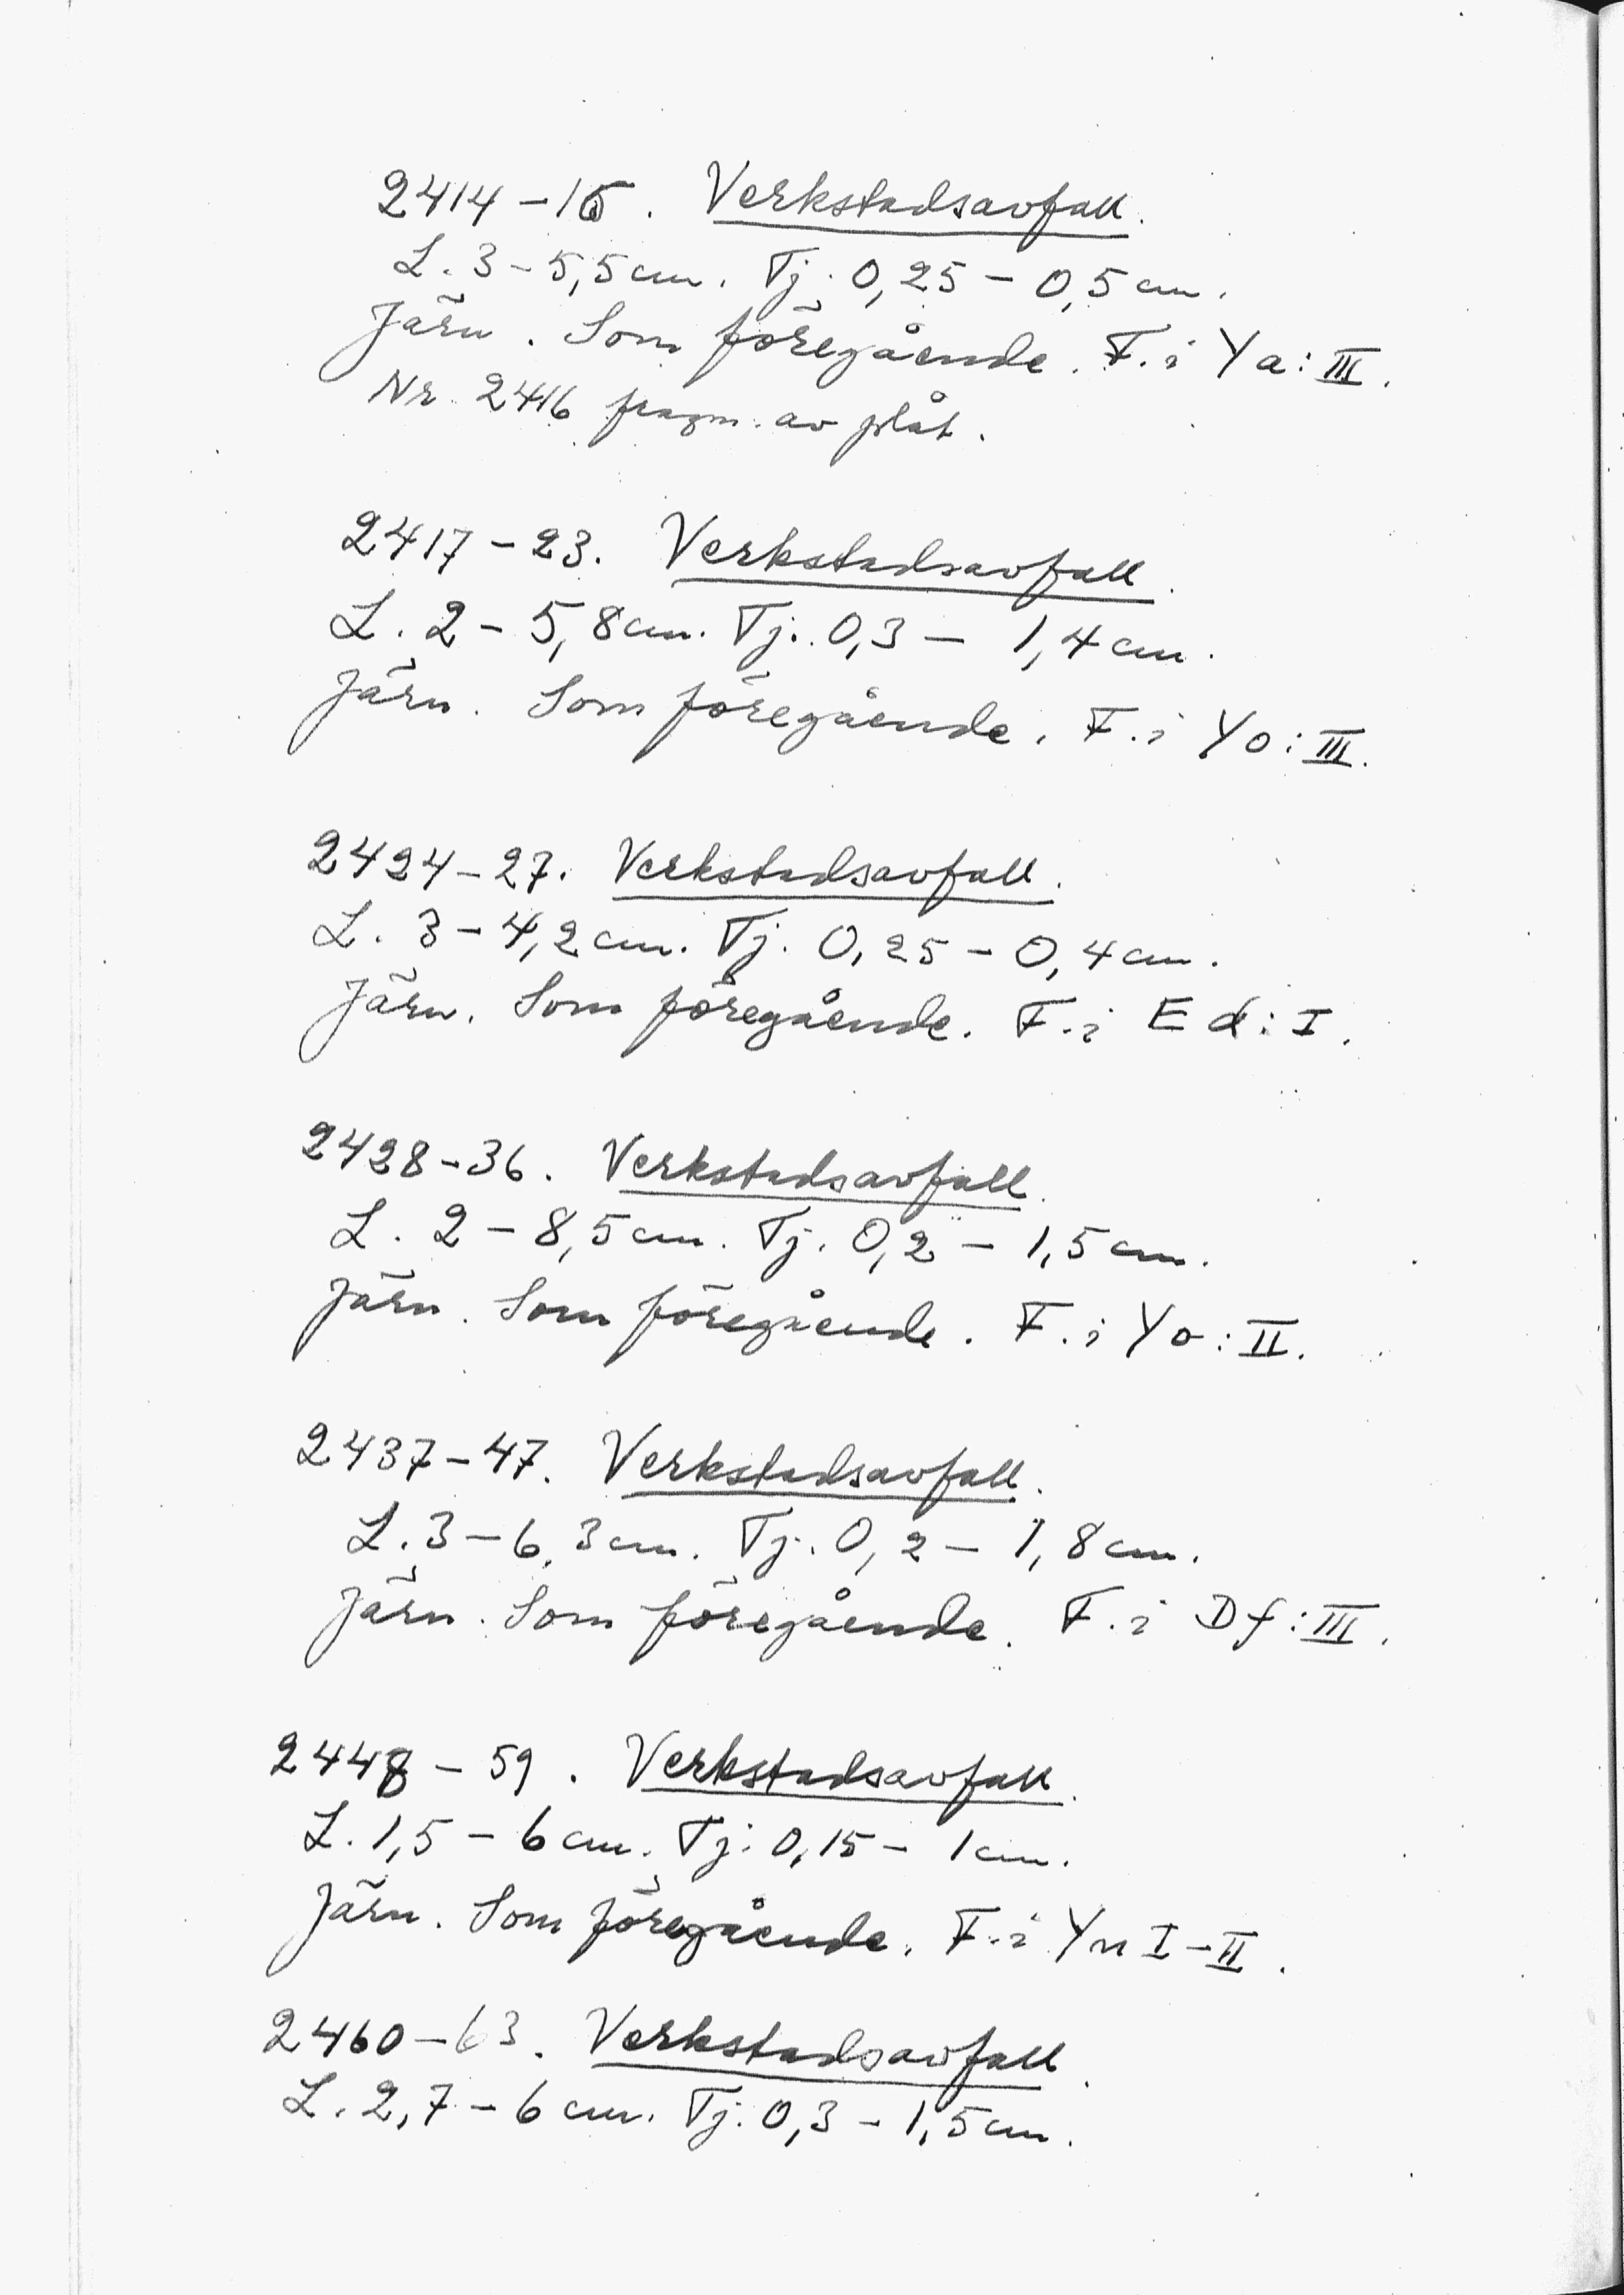 2414-16. Verkstadsavfall.
L. 3-5,5 cm. Tj. 0,25 - 0,5 cm.
Järn. Som föregående. F. i Ya: III.
Nr. 2416 fragm. av plåt.
2417-23. Verkstadsavfall.
L. 2-5,8 cm. Tj. 0,3 - 1,4 cm.
Järn. Som föregående. F. i Yo: III.
2424-27. Verkstadsavfall.
L. 3-4,2 cm. Tj. 0,25 - 0,4 cm.
Järn. Som föregående. F. i Ed: I.
2428-36. Verkstadsavfall.
L. 2 - 8,5 cm. Tj. 0,2 - 1,5 cm.
Järn. Som föregående. F. i Yo: II.
2437-47. Verkstadsavfall.
L. 3-6,3 cm. Tj. 0,2 - 1,8 cm.
Järn. Som föregående. F. i Df: III.
2448 - 59. Verkstadsavfall.
L. 1,5 - 6 cm. Tj: 0,15 - 1 cm.
Järn. Som föregående. F. i Yn I-II.
2460-63. Verkstadsavfall.
L. 2,7 - 6 cm. Tj. 0,3 - 1,5 cm.